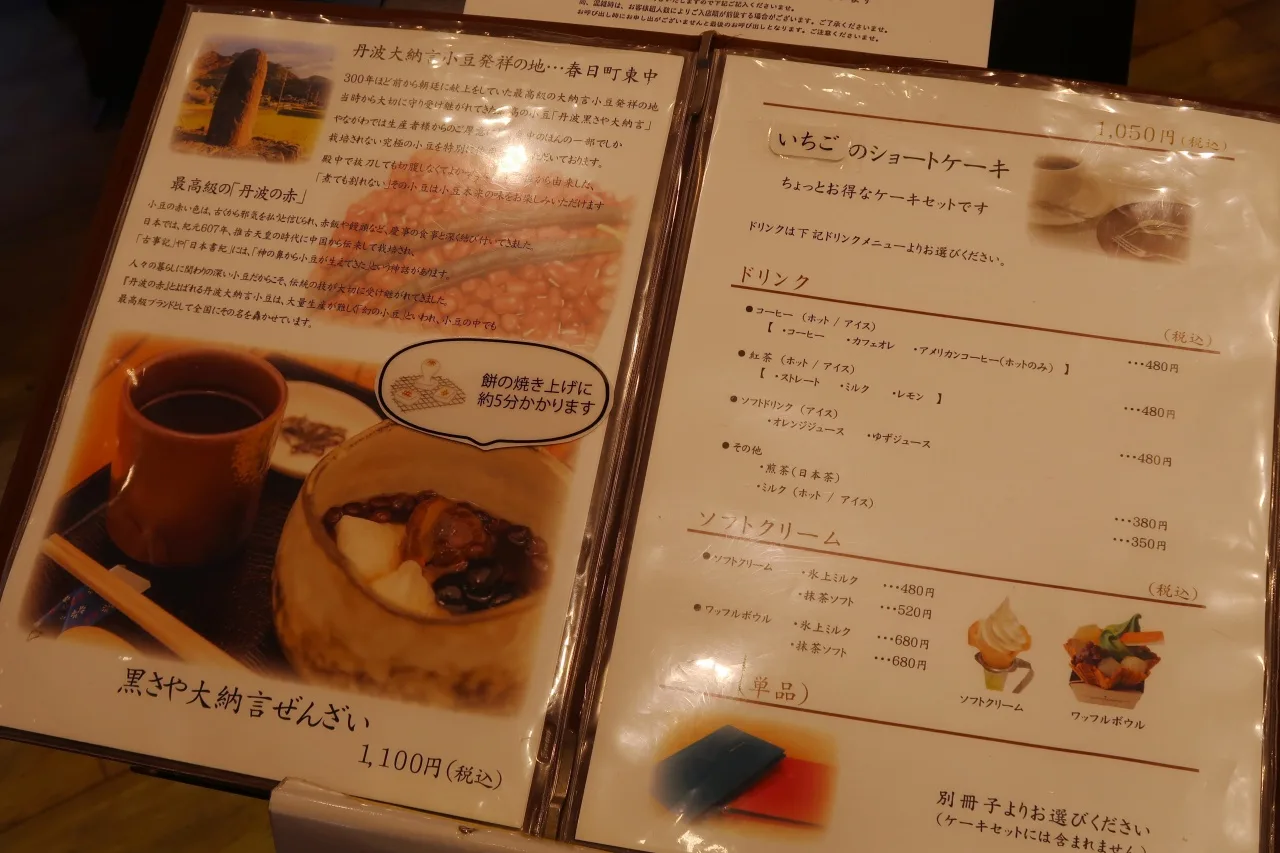 尚、混雑時は、お客様組人数によりご入店順が前後する場合がございます。ご了承くださいませ。
お呼び出し時にお申し出がございませんと最後のお呼び出しとなります。ご注意くださいませ。
丹波大納言小豆発祥の地…春日町東中
300年ほど前から朝廷に献上をしていた最高級の大納言小豆発祥の地
当時から大切に守り受け継がれてきた 高の小豆「丹波黒さや大納言」
やながわでは生産者様からのご厚意 中のほんの一部でしか
栽培されない究極の小豆を特別に ただいております。
殿中で抜刀しても切腹しなくてよか から由来した、
「煮ても割れない」その小豆は小豆本来の味をお楽しみいただけます
最高級の「丹波の赤」
小豆の赤い色は、古くから邪気を払うと信じられ、赤飯や饅頭など、慶事の食事と深く結び付いてきました。
日本では、紀元607年、推古天皇の時代に中国から伝来して栽培され、
「古事記」や「日本書紀」には、「神の鼻から小豆が生えてきた」という神話があります。
人々の暮らしに関わりの深い小豆だからこそ、伝統の技が大切に受け継がれてきました。
『丹波の赤』とよばれる丹波大納言小豆は、大量生産が難しく「幻の小豆」といわれ、小豆の中でも
最高級ブランドとして全国にその名を轟かせています。
餅の焼き上げに
約5分かかります
黒さや大納言ぜんざい
1,100円(税込)
1,050円(税込)
いちごのショートケーキ
ちょっとお得なケーキセットです
ドリンクは下記ドリンクメニューよりお選びください。
ドリンク
(税込)
●コーヒー (ホット / アイス) …480円
【 ・コーヒー ・カフェオレ ・アメリカンコーヒー(ホットのみ) 】
●紅茶 (ホット / アイス) …480円
【 ・ストレート ・ミルク ・レモン 】
●ソフトドリンク (アイス) …480円
・オレンジジュース ・ゆずジュース
●その他
・煎茶(日本茶) …380円
・ミルク (ホット / アイス) …350円
ソフトクリーム
(税込)
●ソフトクリーム ・氷上ミルク …480円
・抹茶ソフト …520円
●ワッフルボウル ・氷上ミルク …680円
・抹茶ソフト …680円
ソフトクリーム
ワッフルボウル
(単品)
別冊子よりお選びください
(ケーキセットには含まれません)